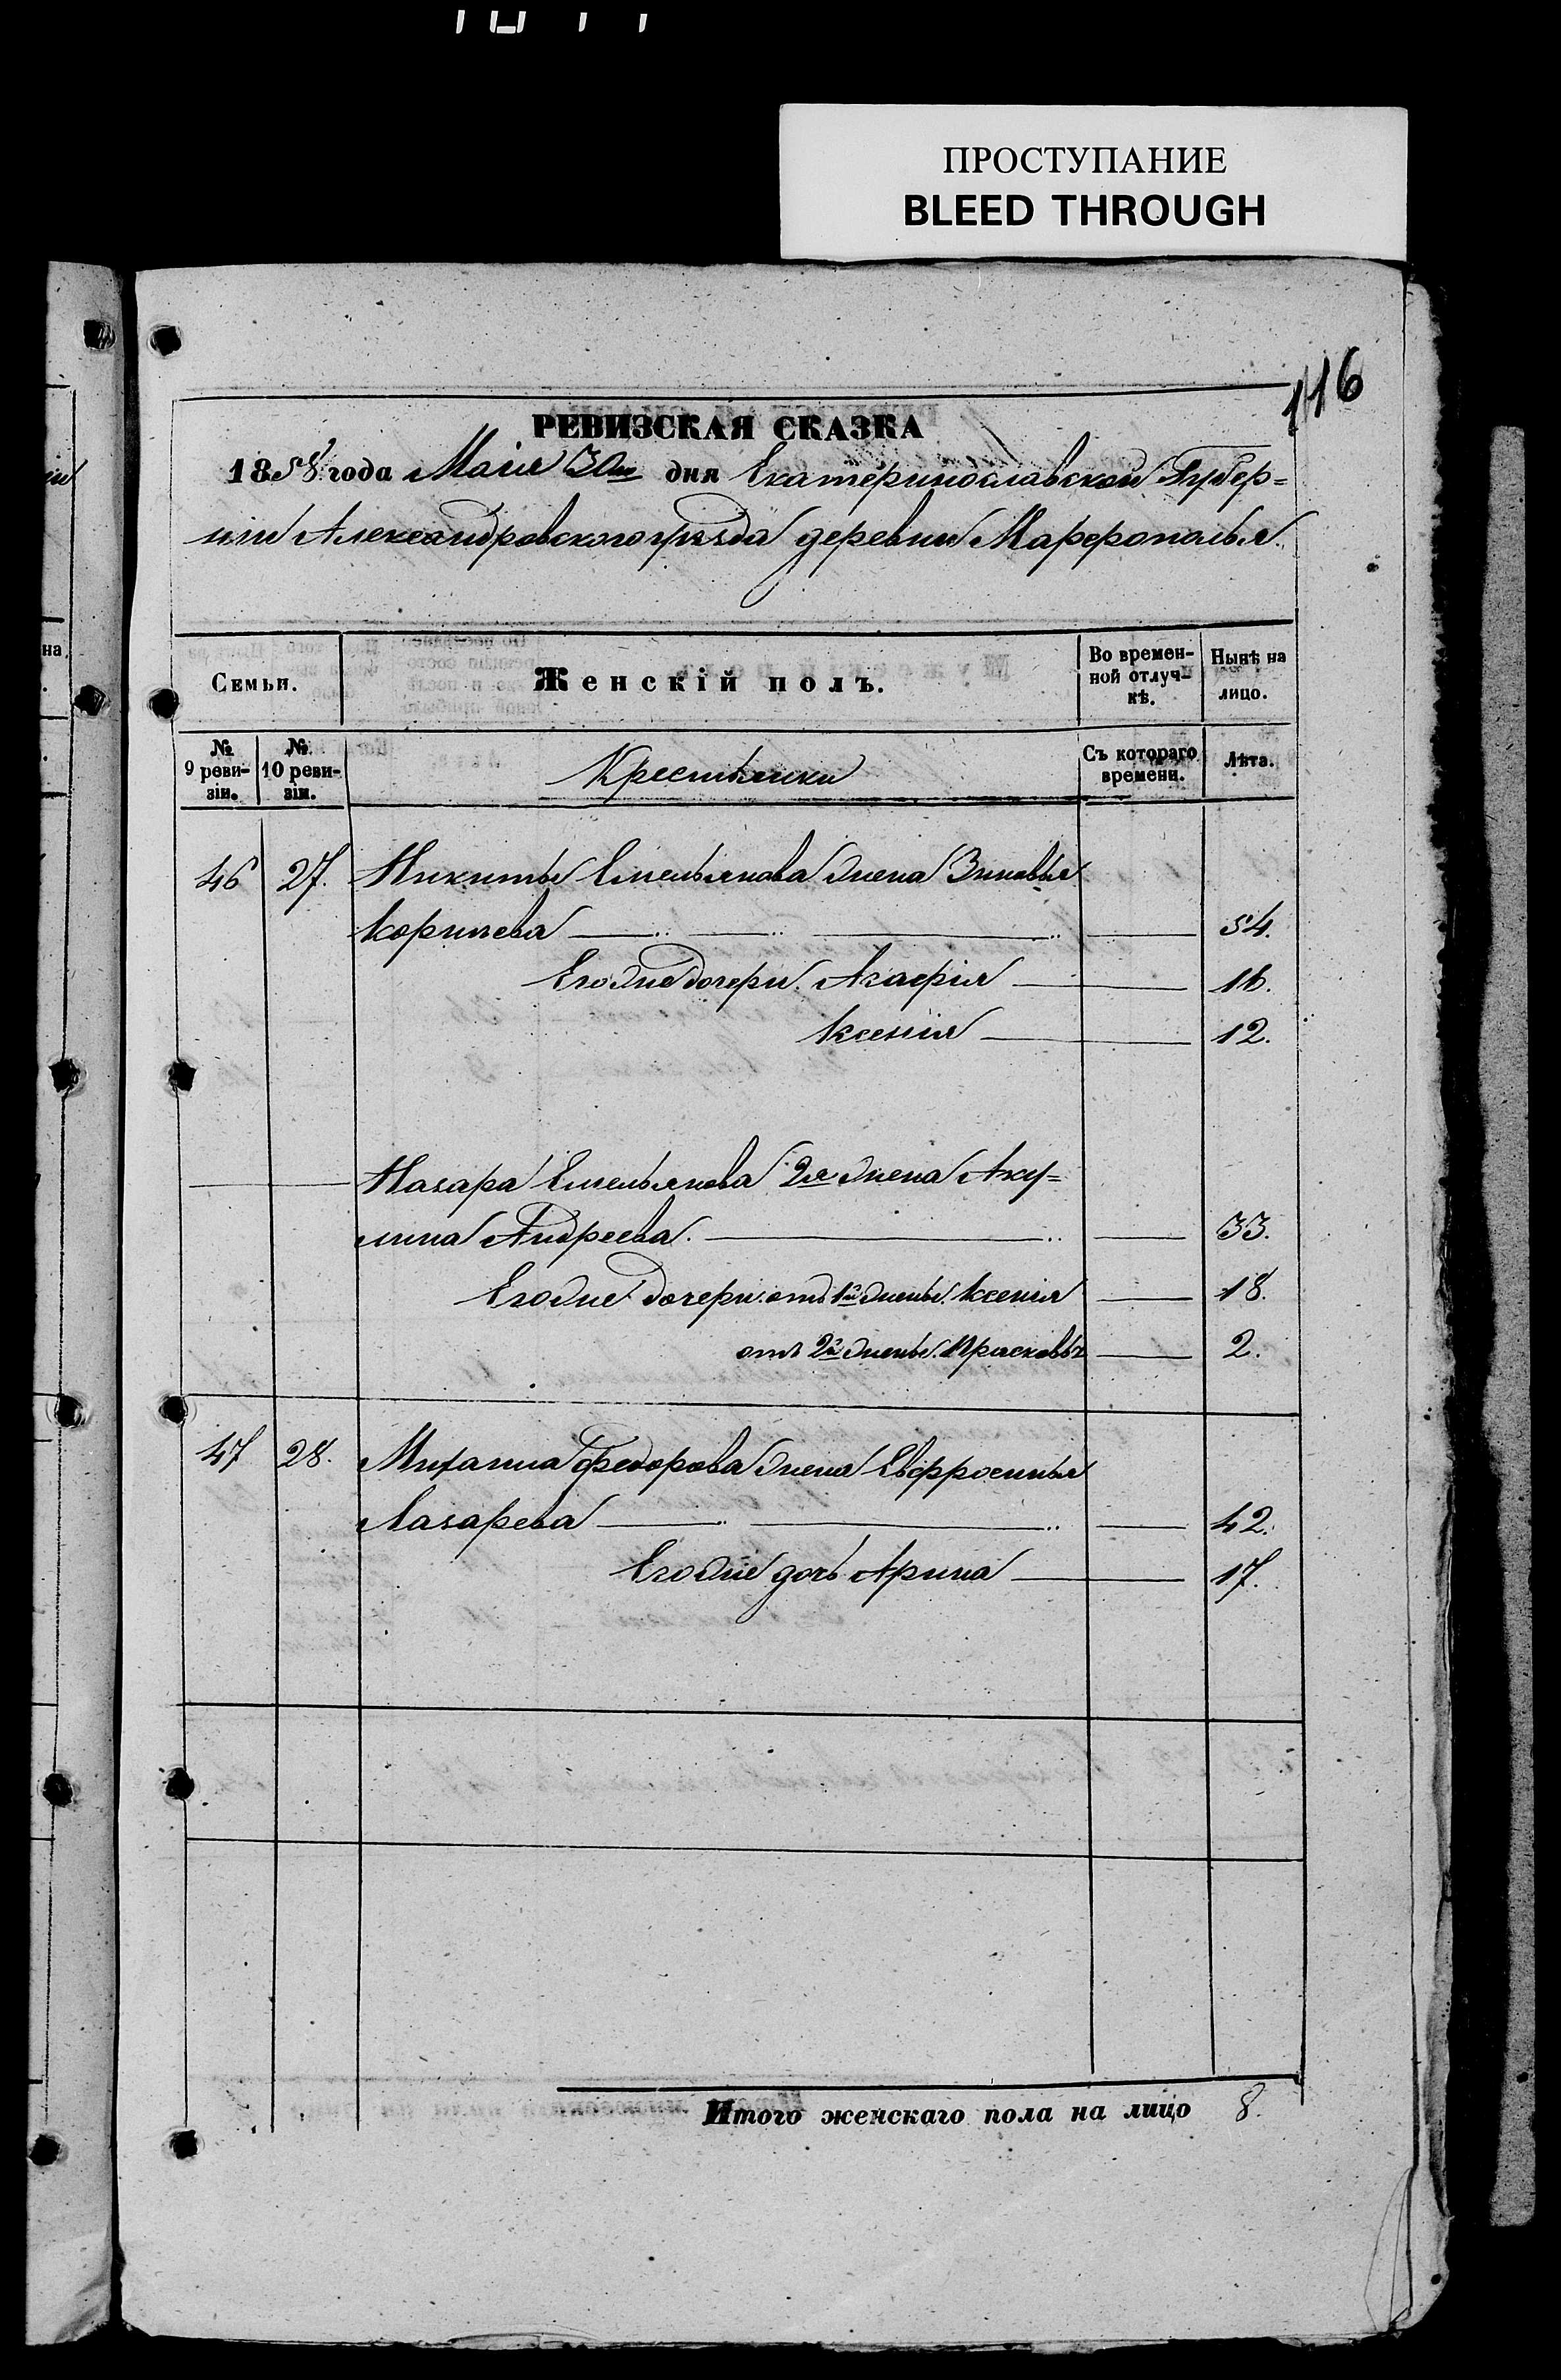 ПРОСТУПАНИЕ
BLEED THROUGH
116
РЕВИЗСКАЯ СКАЗКА
1858 года Маія 30го дня Екатеринославской Губер=
ніи Александровского уѣзда деревни Марфополья.
Семьи.
Женскій полъ.
Во времен-
ной отлуч-
кѣ.
Нынѣ на
лицо.
№
9 реви-
зіи.
№
10 реви-
зіи.
Крестьянки
Съ котораго
времени.
Лѣта.
46 27. Никиты Емельянова жена Зиновья
54.
Его же дочери Агафія 16.
Ксенія 12.
Назара Емельянова 2я жена Аку=
лина Андреева. 33.
Его же дочери отъ 1й жены Ксенія 18.
отъ 2й жены Прасковья 2.
47 28. Михаила Федорова жена Евфросинья
Лазарева 42.
Его же дочь Арина 17.
Итого женскаго пола на лицо 8.